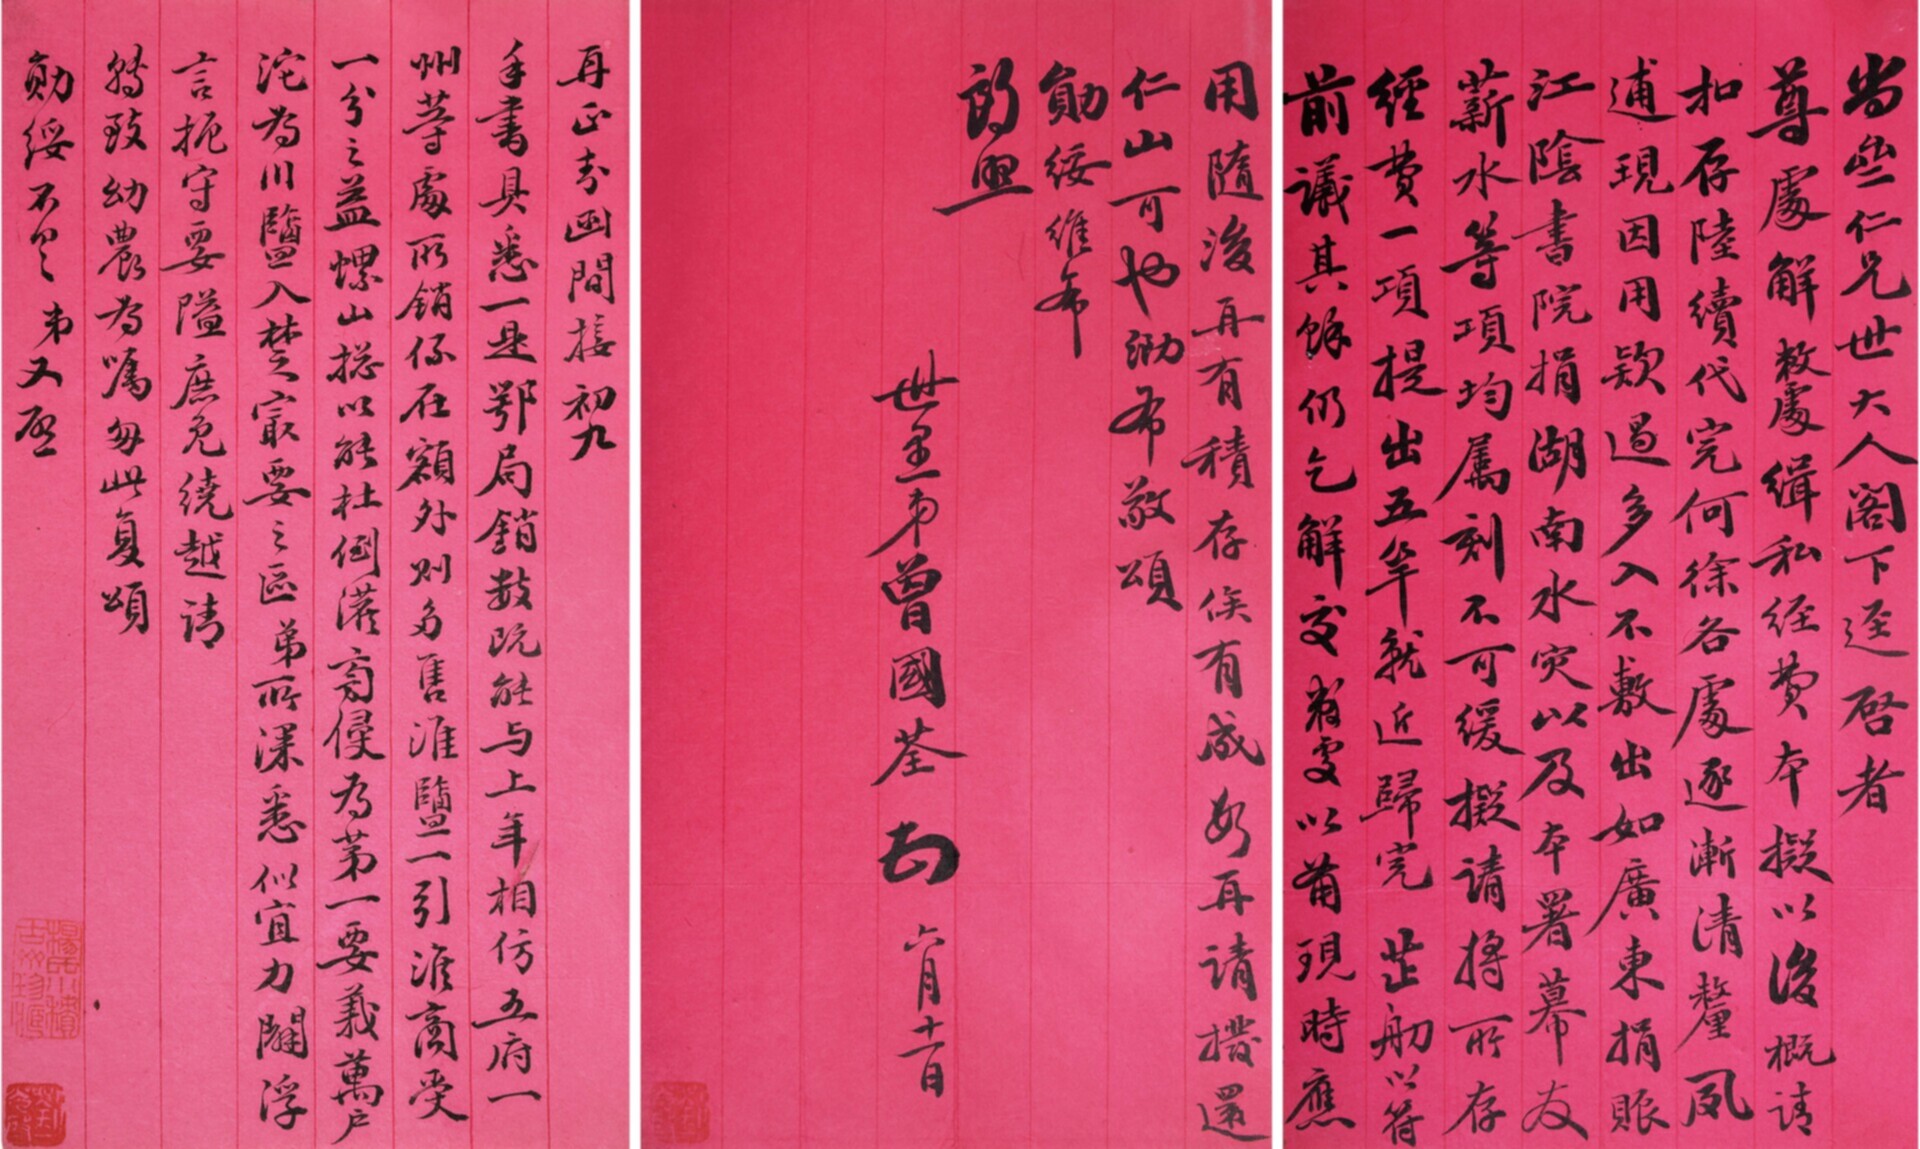 尚垒仁兄世大人阁下迳启者
尊處解敝處缉私经费本擬以後概请
扣存陸續代完何徐各處逐漸清釐夙
逋現因用款過多入不敷出如廣東捐賬
江陰書院捐湖南水灾以及本署幕友
薪水等項均屬刻不可缓擬请將所存
經費一項提出五竿就近歸完芷舠以符
前議其餘仍乞解交敝處以備現時應
用隨後再有積存俟有成數再请撥還
仁山可也泐希敬頌
勛绥维希
荫照
世愚弟曾國荃頓 六月十一日
再正封函間接初九
手書具悉一是鄂局銷数既能与上年相仿五府一
州等處所銷係在額外则多售淮鹽一引淮商受
一分之益螺山總以能杜倒灌商侵為第一要義萬户
沱為川鹽入楚最要之区弟所深悉似宜力闢浮
言扼守要隘庶免绕越请
轉致幼農為嘱匆此复頌
勛绥不具 弟又啟